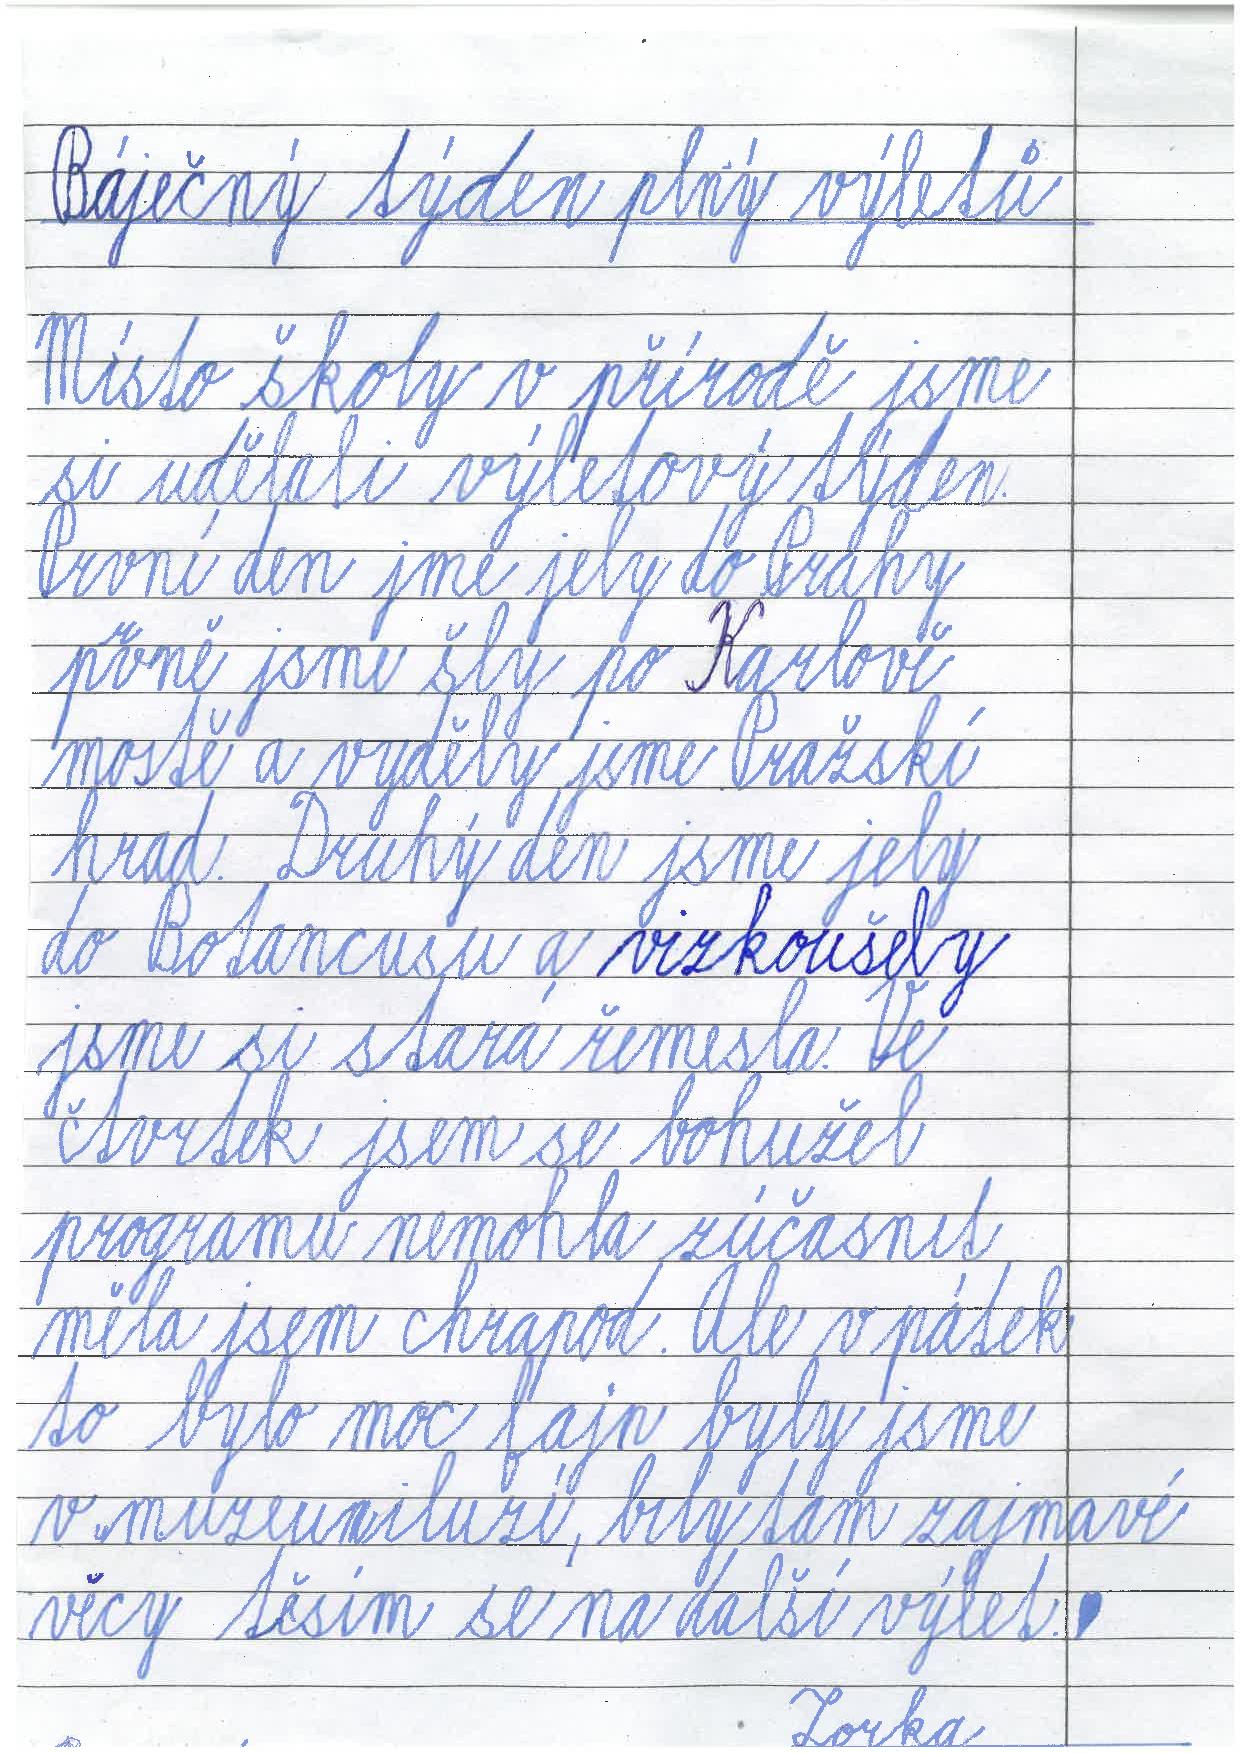 Báječný týden plný výletů
Místo školy v přírodě jsme
si udělali výletový týden.
První den jme jely do Prahy
prvně jsme šly po Karlově
mostě a vyděly jsme Pražskí
hrad. Druhý den jsme jely
do Botancusu a vizkoušely
jsme si stará řemesla. Ve
čtvrtek jsem se bohužel
programu nemohla zúčasnit
měla jsem chrapod. Ale v pátek
to bylo moc fajn byly jsme
v muzeum iluzí, bily tam zajmaví
věcy těsím se na další výlet.
Zorka